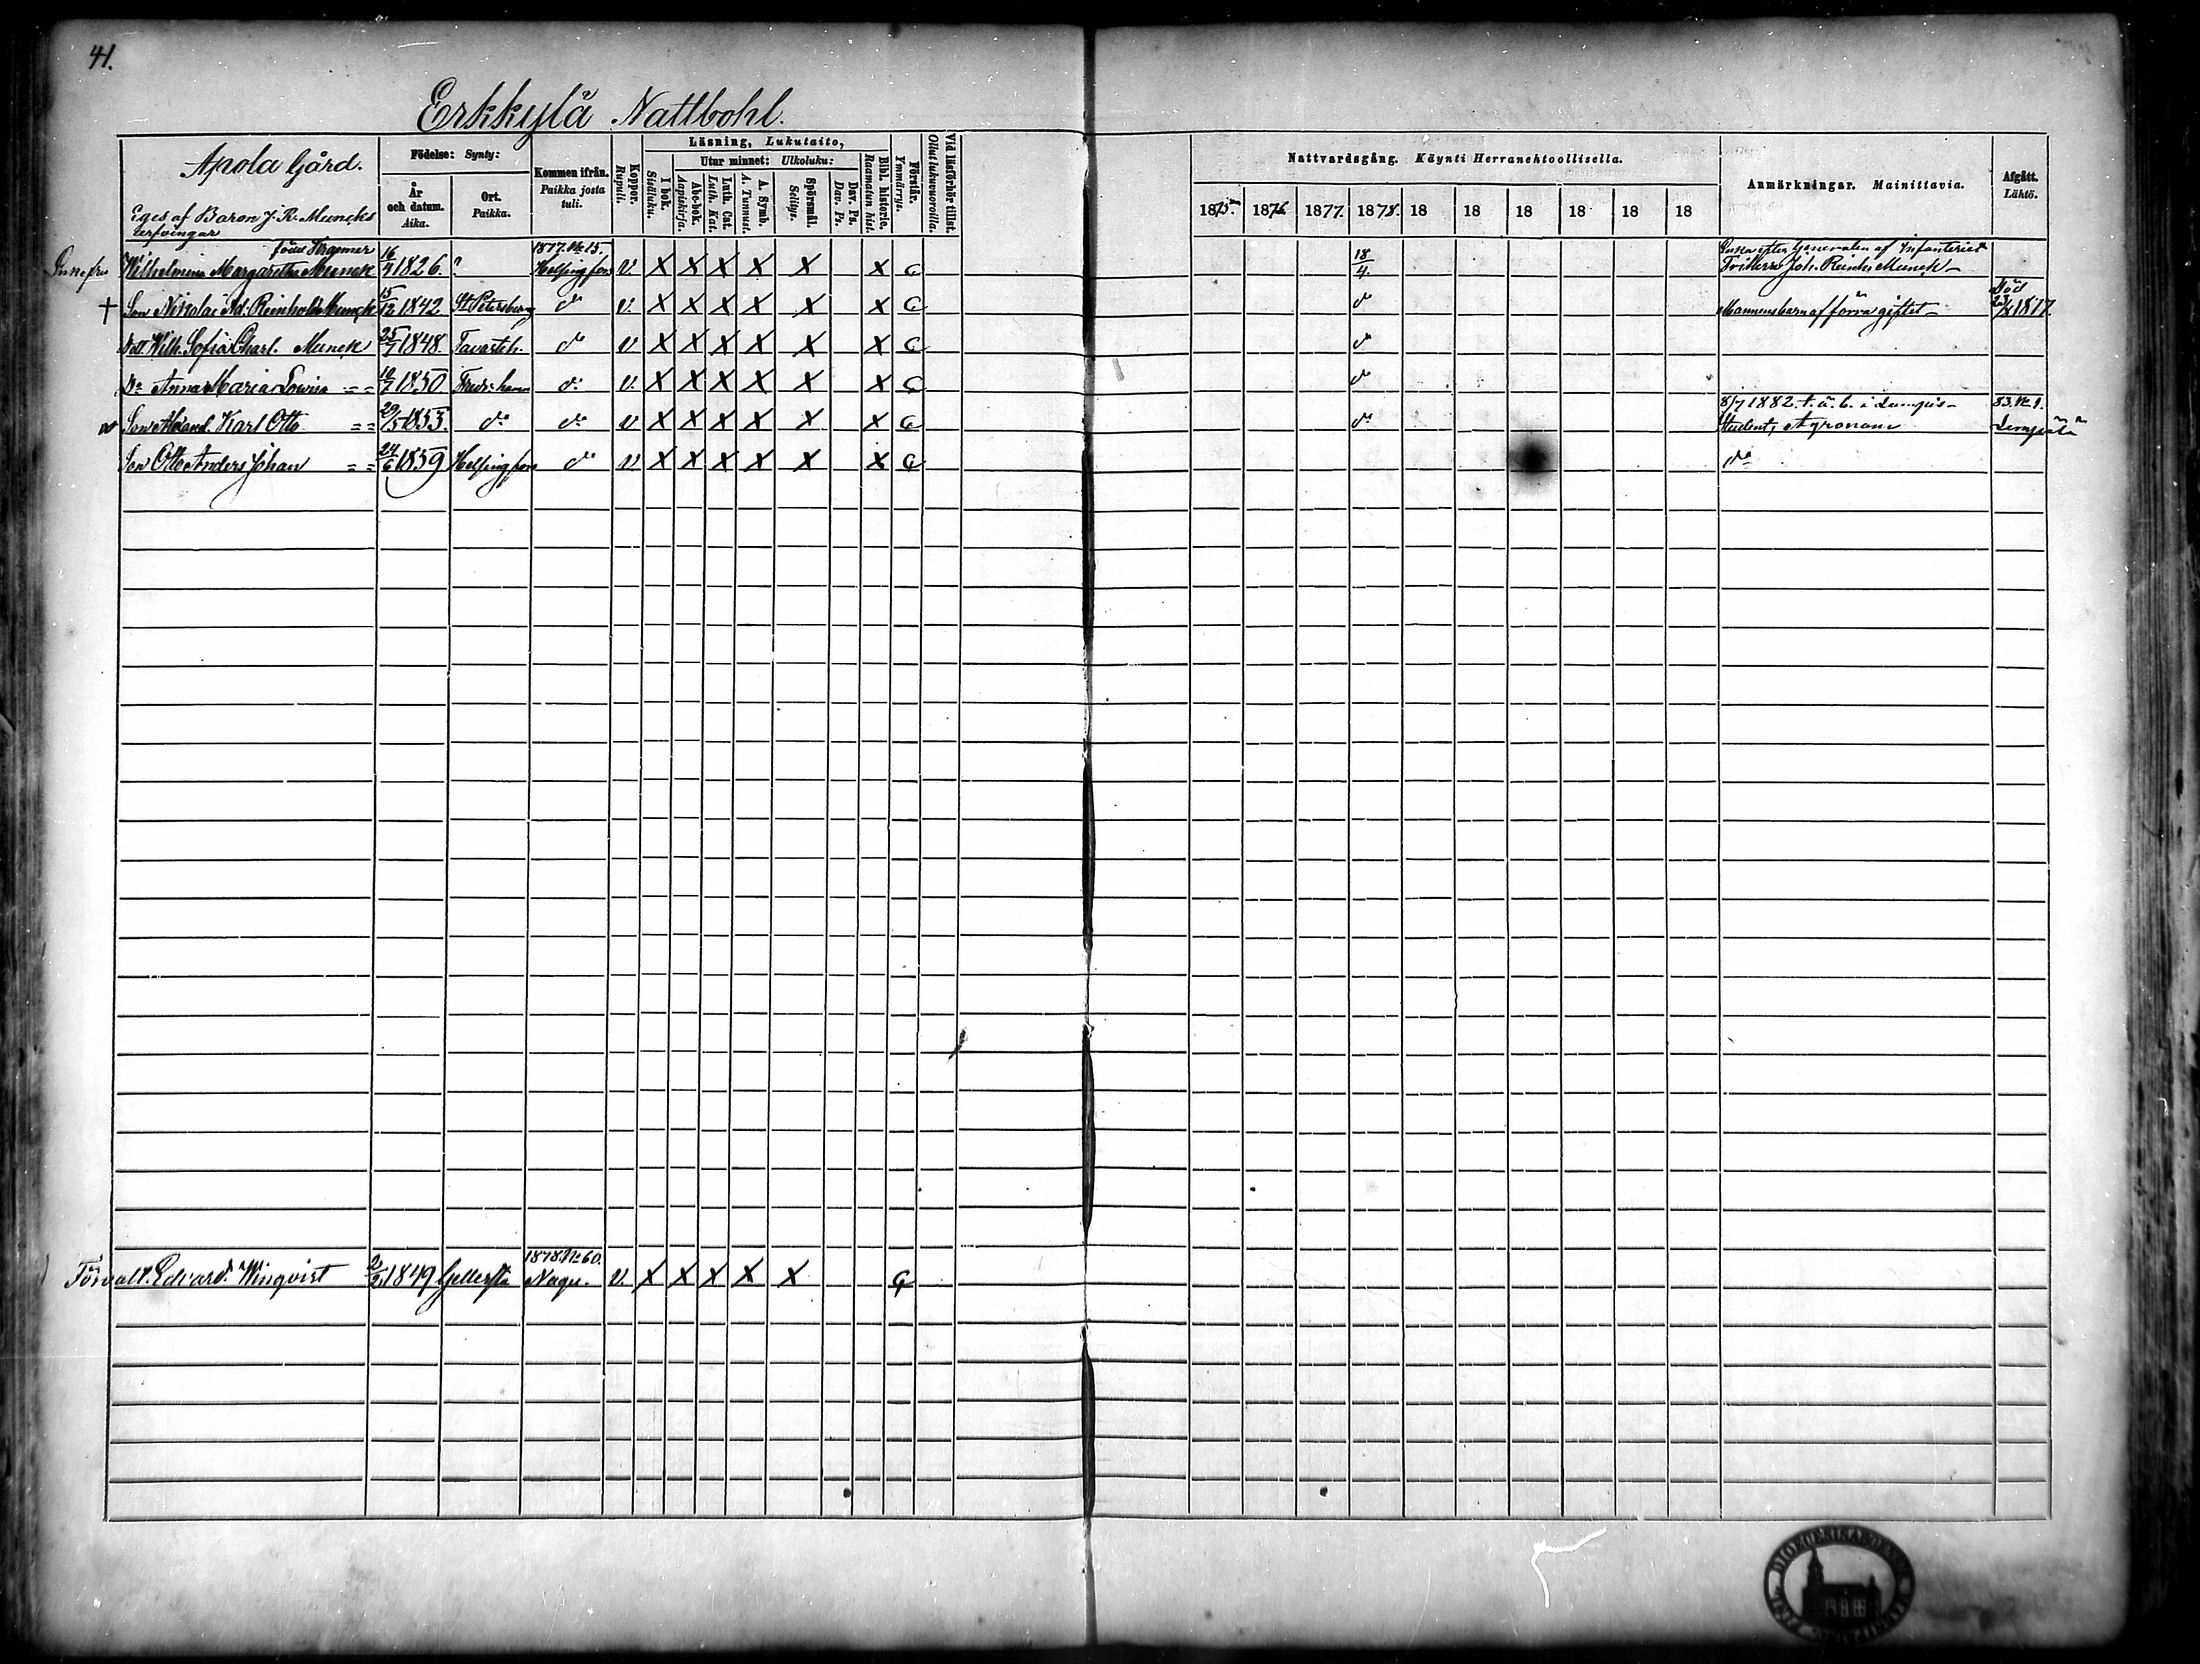 41.
Erkkylä Nattbohl.
Apola Gård.
Eges af Baron J. R. Muncks
arfvingar
Födelse: Synty:
År och datum. Aika.
Ort. Paikka.
Kommen ifrån. Paikka josta tuli.
Koppor. Rupuli.
Läsning, Lukutaito,
I bok. Sisäluku.
Utur minnet: Ulkoluku:
Abc-bok. Aapiskirja.
Luth. Cat. Luth. Kat.
A. Symb. A. Tunnust.
Spörsmål. Selitys.
Dav. Ps. Dav. Ps.
Bibl. historie. Raamatun hist.
Förstår. Ymmärrys.
Vid läsförhör tillst. Ollut lukuvuoroilla.
Nattvardsgång. Käynti Herranehtoollisella.
1875. 1876 1877. 1878. 18 18 18 18 18 18
Anmärkningar. Mainittavia.
Afgått. Lähtö.
Enkefru Wilhelmina Margaretha Munck 16/4 1826. ? 1877. No 15. Helsingfors v. X X X X X X 18/4. Enka efter Generalen af Infanteriet
Friherre Joh. Reinh. Munck
† Son Nikolai Ad. Reinhold Munck 15/12 1842 St Petersburg do v. X X X X X X do Mannens barn af förra giftet Död 23/8 1877.
Dott. Wilh. Sofia Charl. Munck 25/7 1848. Tavasteh. do v X X X X X X do
Do Anna Maria Lovisa = = 1850. Fredr:hamn do v. X X X X X X do
Son Alexand. Karl Otto = = 29/5 1853. do do v X X X X X X do 8/7 1882. t. ä. b. i Lempis 83. No 1.
Student, Agronom Lempäälä
Son Otto Anders Johan = = 24/6 1859 Helsingfors do v X X X X X X do
Förvalt. Edvard Winqvist 1849 Gellersta 1878 No 60. Nagu. v. X X X X X